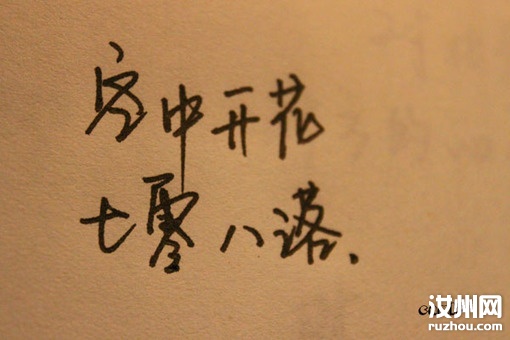 空中开花
七零八落、
汝州网
ruzhou.com